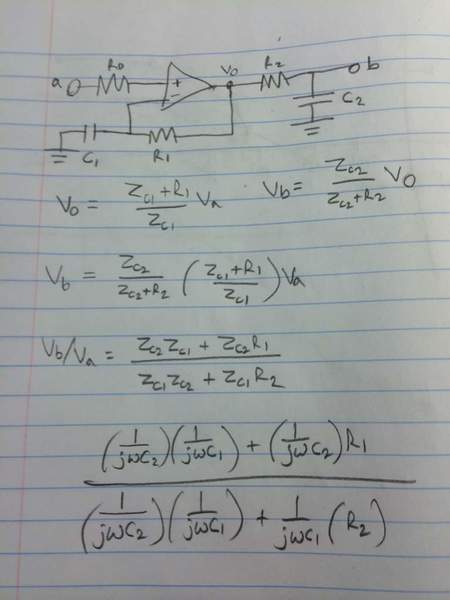 a R0 + - V0 R2 b
C2
C1 R1
V0 = (Zc1 + R1)/Zc1 Va Vb = Zc2/(Zc2+R2) V0
Vb = Zc2/(Zc2+R2) ((Zc1+R1)/Zc1) Va
Vb/Va = (Zc2Zc1 + Zc2R1)/(Zc1Zc2 + Zc1R2)
((1/jωC2)(1/jωC1) + (1/jωC2)R1)/((1/jωC2)(1/jωC1) + 1/jωC1 (R2))